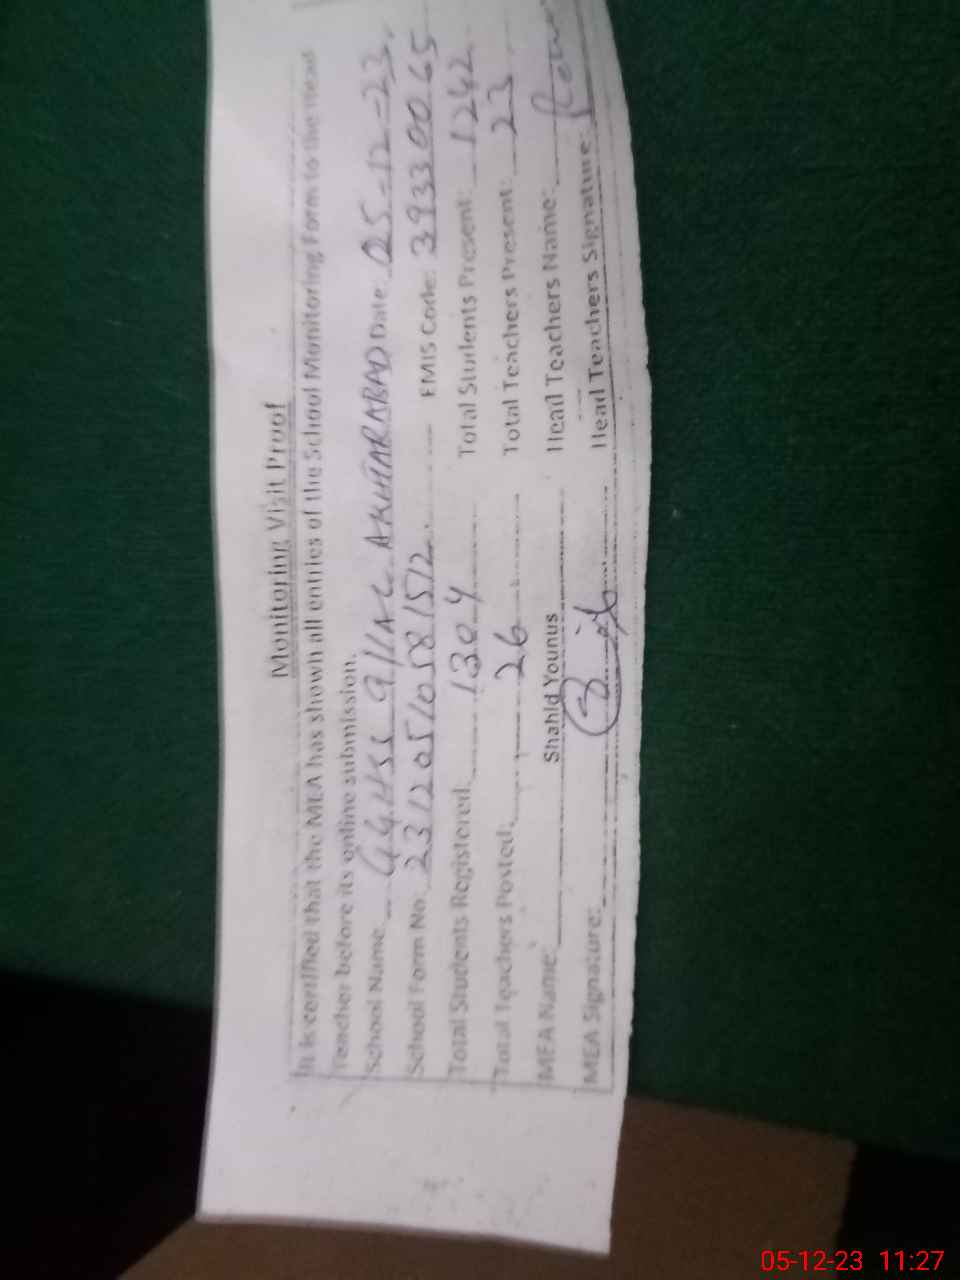 Monitoring Visit Proof
It is certified that the MEA has shown all entries of the School Monitoring Form to the Head
Teacher before its online submission.
School Name GGHSS 9/1AL AKHTARABAD Date: 05-12-23
School Form No. 23120510581512 EMIS Code: 39330065
Total Students Registered: 1304 Total Students Present: 1242
Total Teachers Posted: 26 Total Teachers Present: 23
MEA Name: Shahid Younus Head Teachers Name:
MEA Signature: Head Teachers Signature:
05-12-23 11:27